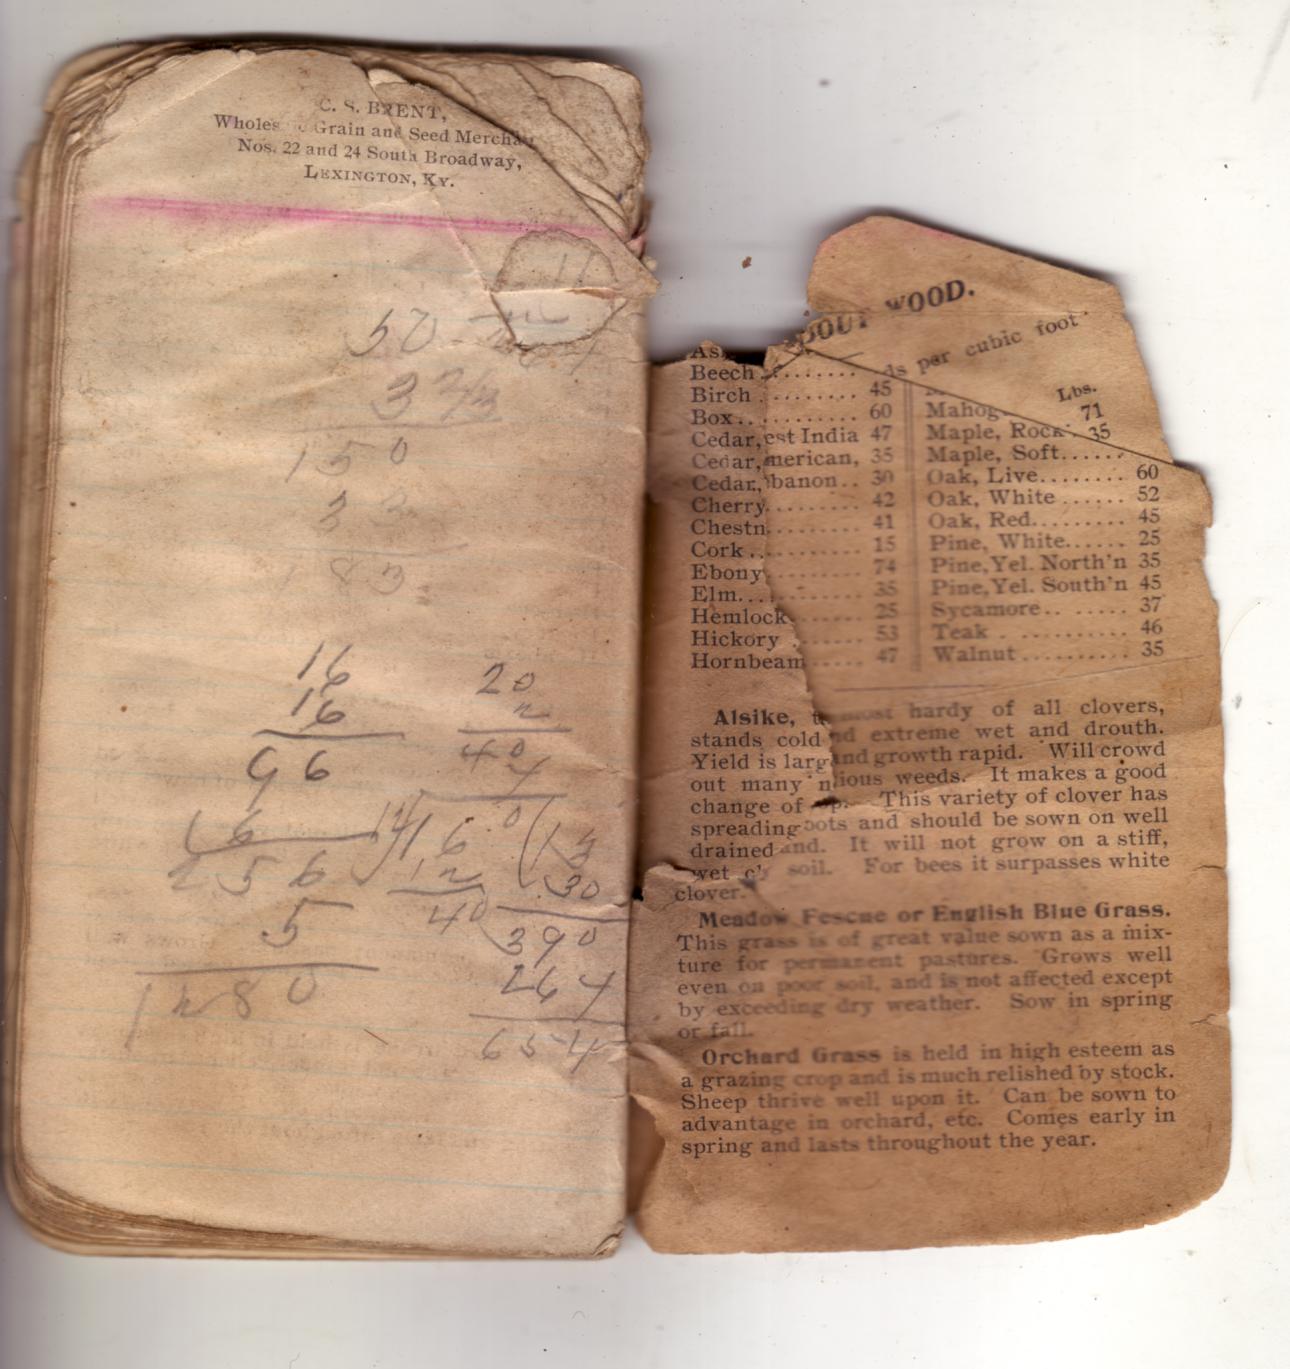 C. S. BRENT,
Grain and Seed
Nos. 22 and 24 South Broadway,
LEXINGTON, KY.
11
50
3 2/3
150
33
183
16
16
96
16
256
5
1280
20
2
40
16
12
40
13
30
390
264
654
WOOD.
per cubic foot
Lbs.
71
35
Beech ........
Birch ........ 45
Box .......... 60
Cedar, est India 47
Cedar, merican, 35
Cedar, banon .. 30
Cherry ........ 42
Chestn ........ 41
Cork .......... 15
Ebony ........ 74
Elm .......... 35
Hemlock ...... 25
Hickory ...... 53
Hornbeam ..... 47
Mahog
Maple, Rock
Maple, Soft......
Oak, Live........ 60
Oak, White ...... 52
Oak, Red......... 45
Pine, White...... 25
Pine, Yel. North'n 35
Pine, Yel. South'n 45
Sycamore.. ...... 37
Teak . .......... 46
Walnut .......... 35
Alsike, most hardy of all clovers,
stands cold nd extreme wet and drouth.
Yield is larg and growth rapid. Will crowd
out many n ious weeds. It makes a good
change of This variety of clover has
spreading oots and should be sown on well
drained and. It will not grow on a stiff,
wet soil. For bees it surpasses white
clover.
Meadow Fescue or English Blue Grass.
This grass is of great value sown as a mix-
ture for permanent pastures. Grows well
even on poor soil, and is not affected except
by exceeding dry weather. Sow in spring
or fall.
Orchard Grass is held in high esteem as
a grazing crop and is much relished by stock.
Sheep thrive well upon it. Can be sown to
advantage in orchard, etc. Comes early in
spring and lasts throughout the year.